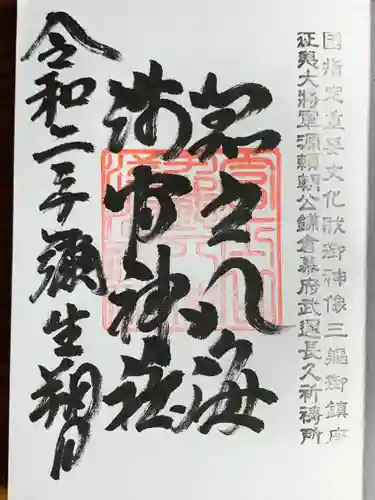 国指定重要文化財御神像三軀御鎮座
征夷大將軍源頼朝公鎌倉幕府武運長久祈禱所
之八海
神社
令和二年彌生朔日